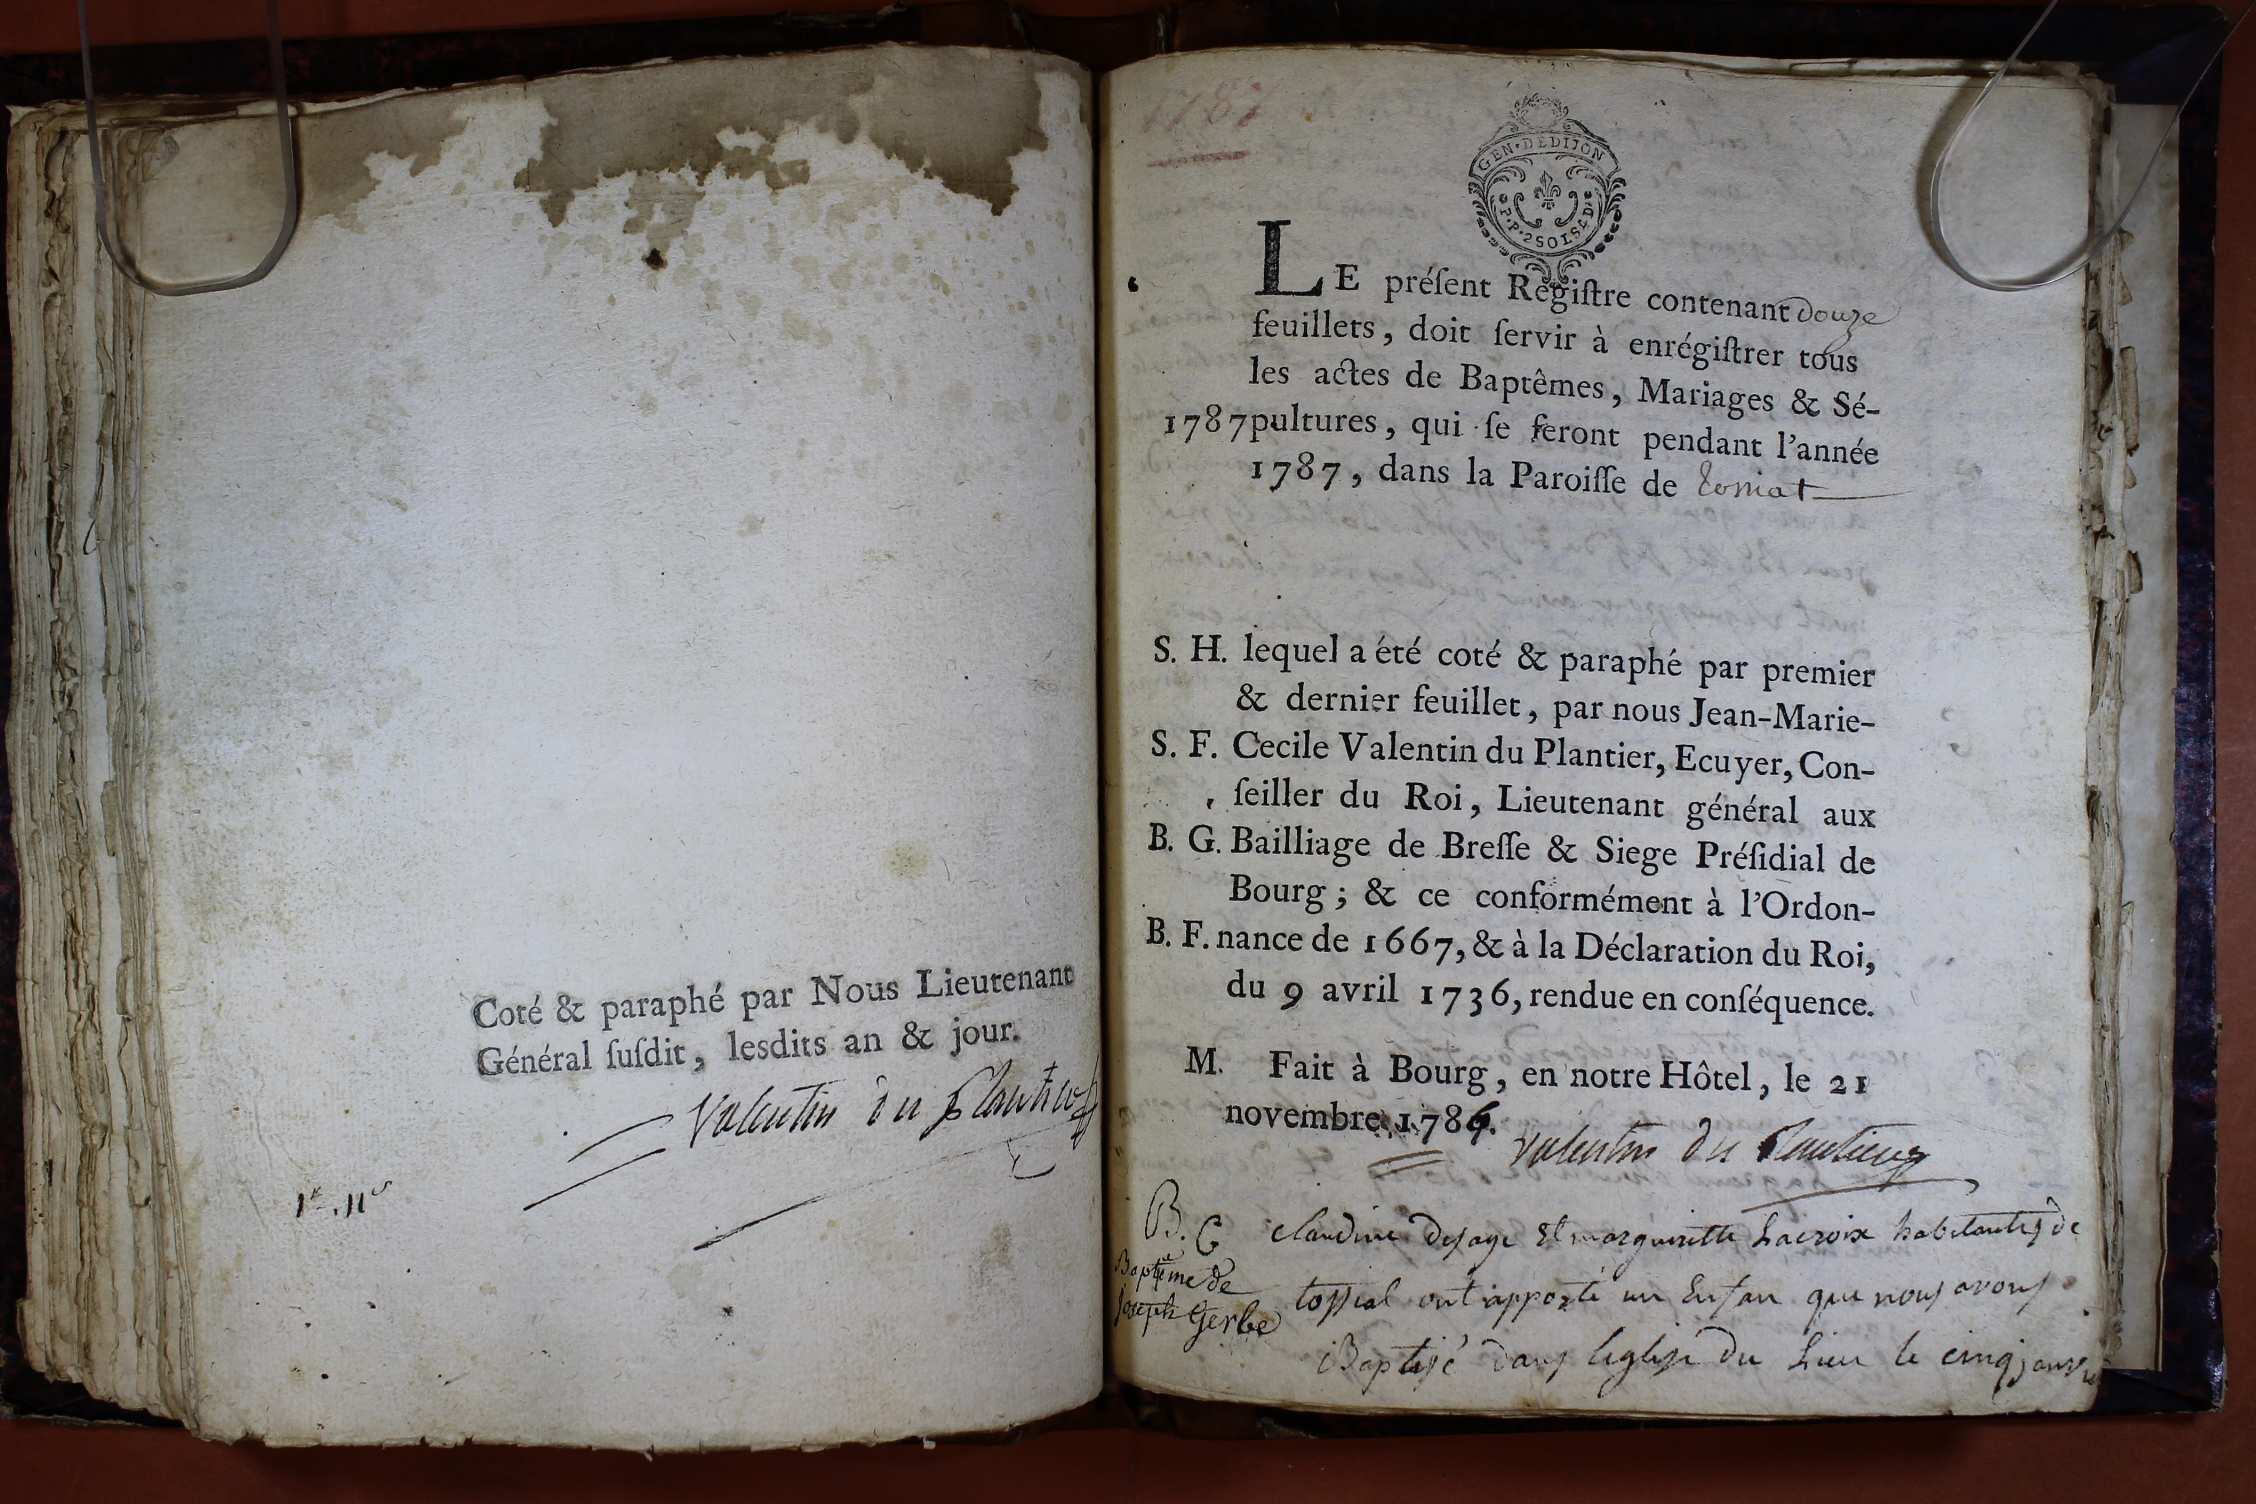 Coté & paraphé par Nous Lieutenant
Général ſuſdit, lesdits an & jour.
Valentin du Plantier
1787
GEN·DEDIJON
P·P·2SOLS4D·
LE préſent Regiſtre contenant douze
feuillets, doit ſervir à enrégiſtrer tous
les actes de Baptêmes, Mariages & Sé-
1787 pultures, qui ſe feront pendant l'année
1787, dans la Paroiſſe de
S. H. lequel a été coté & paraphé par premier
& dernier feuillet, par nous Jean-Marie-
S. F. Cecile Valentin du Plantier, Ecuyer, Con-
ſeiller du Roi, Lieutenant général aux
B. G. Bailliage de Breſſe & Siege Préſidial de
Bourg; & ce conformément à l'Ordon-
B. F. nance de 1667, & à la Déclaration du Roi,
du 9 avril 1736, rendue en conſéquence.
M. Fait à Bourg, en notre Hôtel, le 21
novembre 1786.
Valentin du Plantier
B. G
Baptême de
Joseph Gerbe
claudine Et marguieritte Lacroix habitantes de
tossiat ont apporté un Enfan que nous avons
Baptisé dans leglise du Lieu le cinq janvie